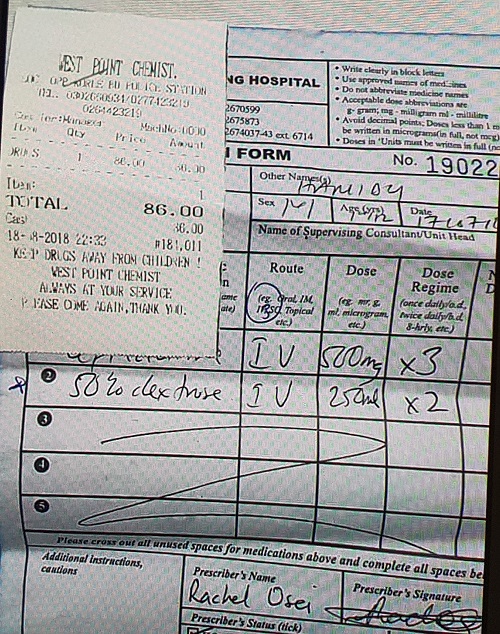 WEST POINT CHEMIST.
LOC. OPP KORLE BU POLICE STATION
TEL. 0302680934/0277423219
0264423219
Cus for:Manager MachNo:0000
Item Qty Price Amount
DRUGS 1 86.00 86.00
Item: 1
TOTAL 86.00
Cash 86.00
22:33 #181,011
KEEP DRUGS AWAY FROM CHILDREN !
WEST POINT CHEMIST
ALWAYS AT YOUR SERVICE
PLEASE COME AGAIN,THANK YOU.
NG HOSPITAL
2670599
2675873
2674037-43 ext. 6714
• Write clearly in block letters
• Use approved names of medicines
• Do not abbreviate medicine names
• Acceptable dose abbreviations are
g- gram; mg - milligram ml - millilitre
• Avoid decimal points; Doses less than 1
be written in micrograms(in full, not mcg)
• Doses in 'Units must be written in full (no
FORM
No. 19022
Other Names(s)
Sex M Age (yrs) Date
Name of Supervising Consultant/Unit Head
Route
(eg. Oral, IM, IV, SC, Topical etc.)
Dose
(eg. mr, g, ml, microgram, etc.)
Dose Regime
(once daily/o.d, twice daily/b.d, 8-hrly, etc.)
IV 500mg x3
2 50% dextrose IV 250ml x2
3
4
5
Please cross out all unused spaces for medications above and complete all spaces be
Additional instructions, cautions
Prescriber's Name
Rachel Osei
Prescriber's Signature
Prescriber's Status (tick)